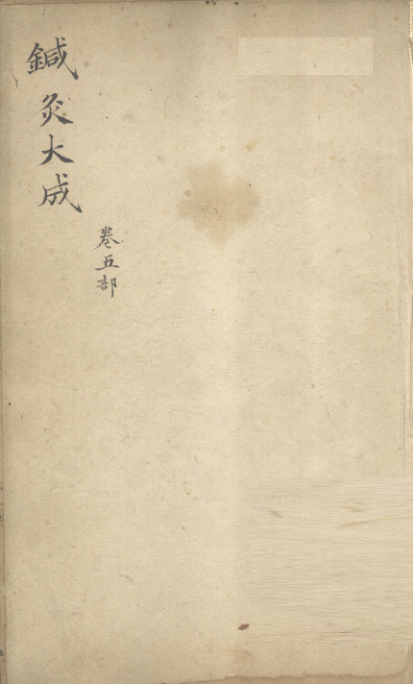 鍼灸大成
卷五部